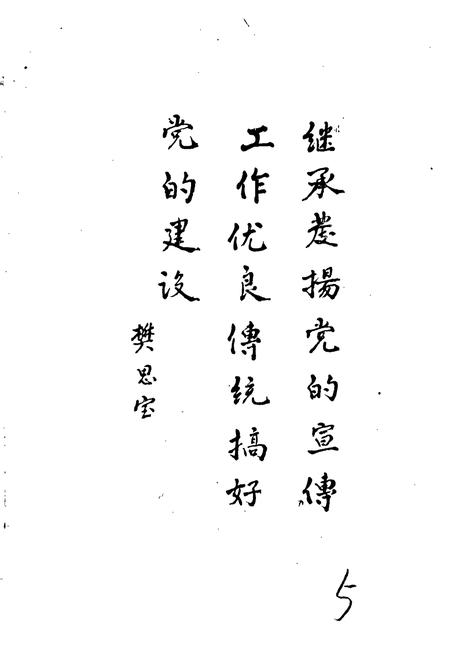 继承发揚党的宣傳
工作优良傳統搞好
党的建设
樊思宝
5